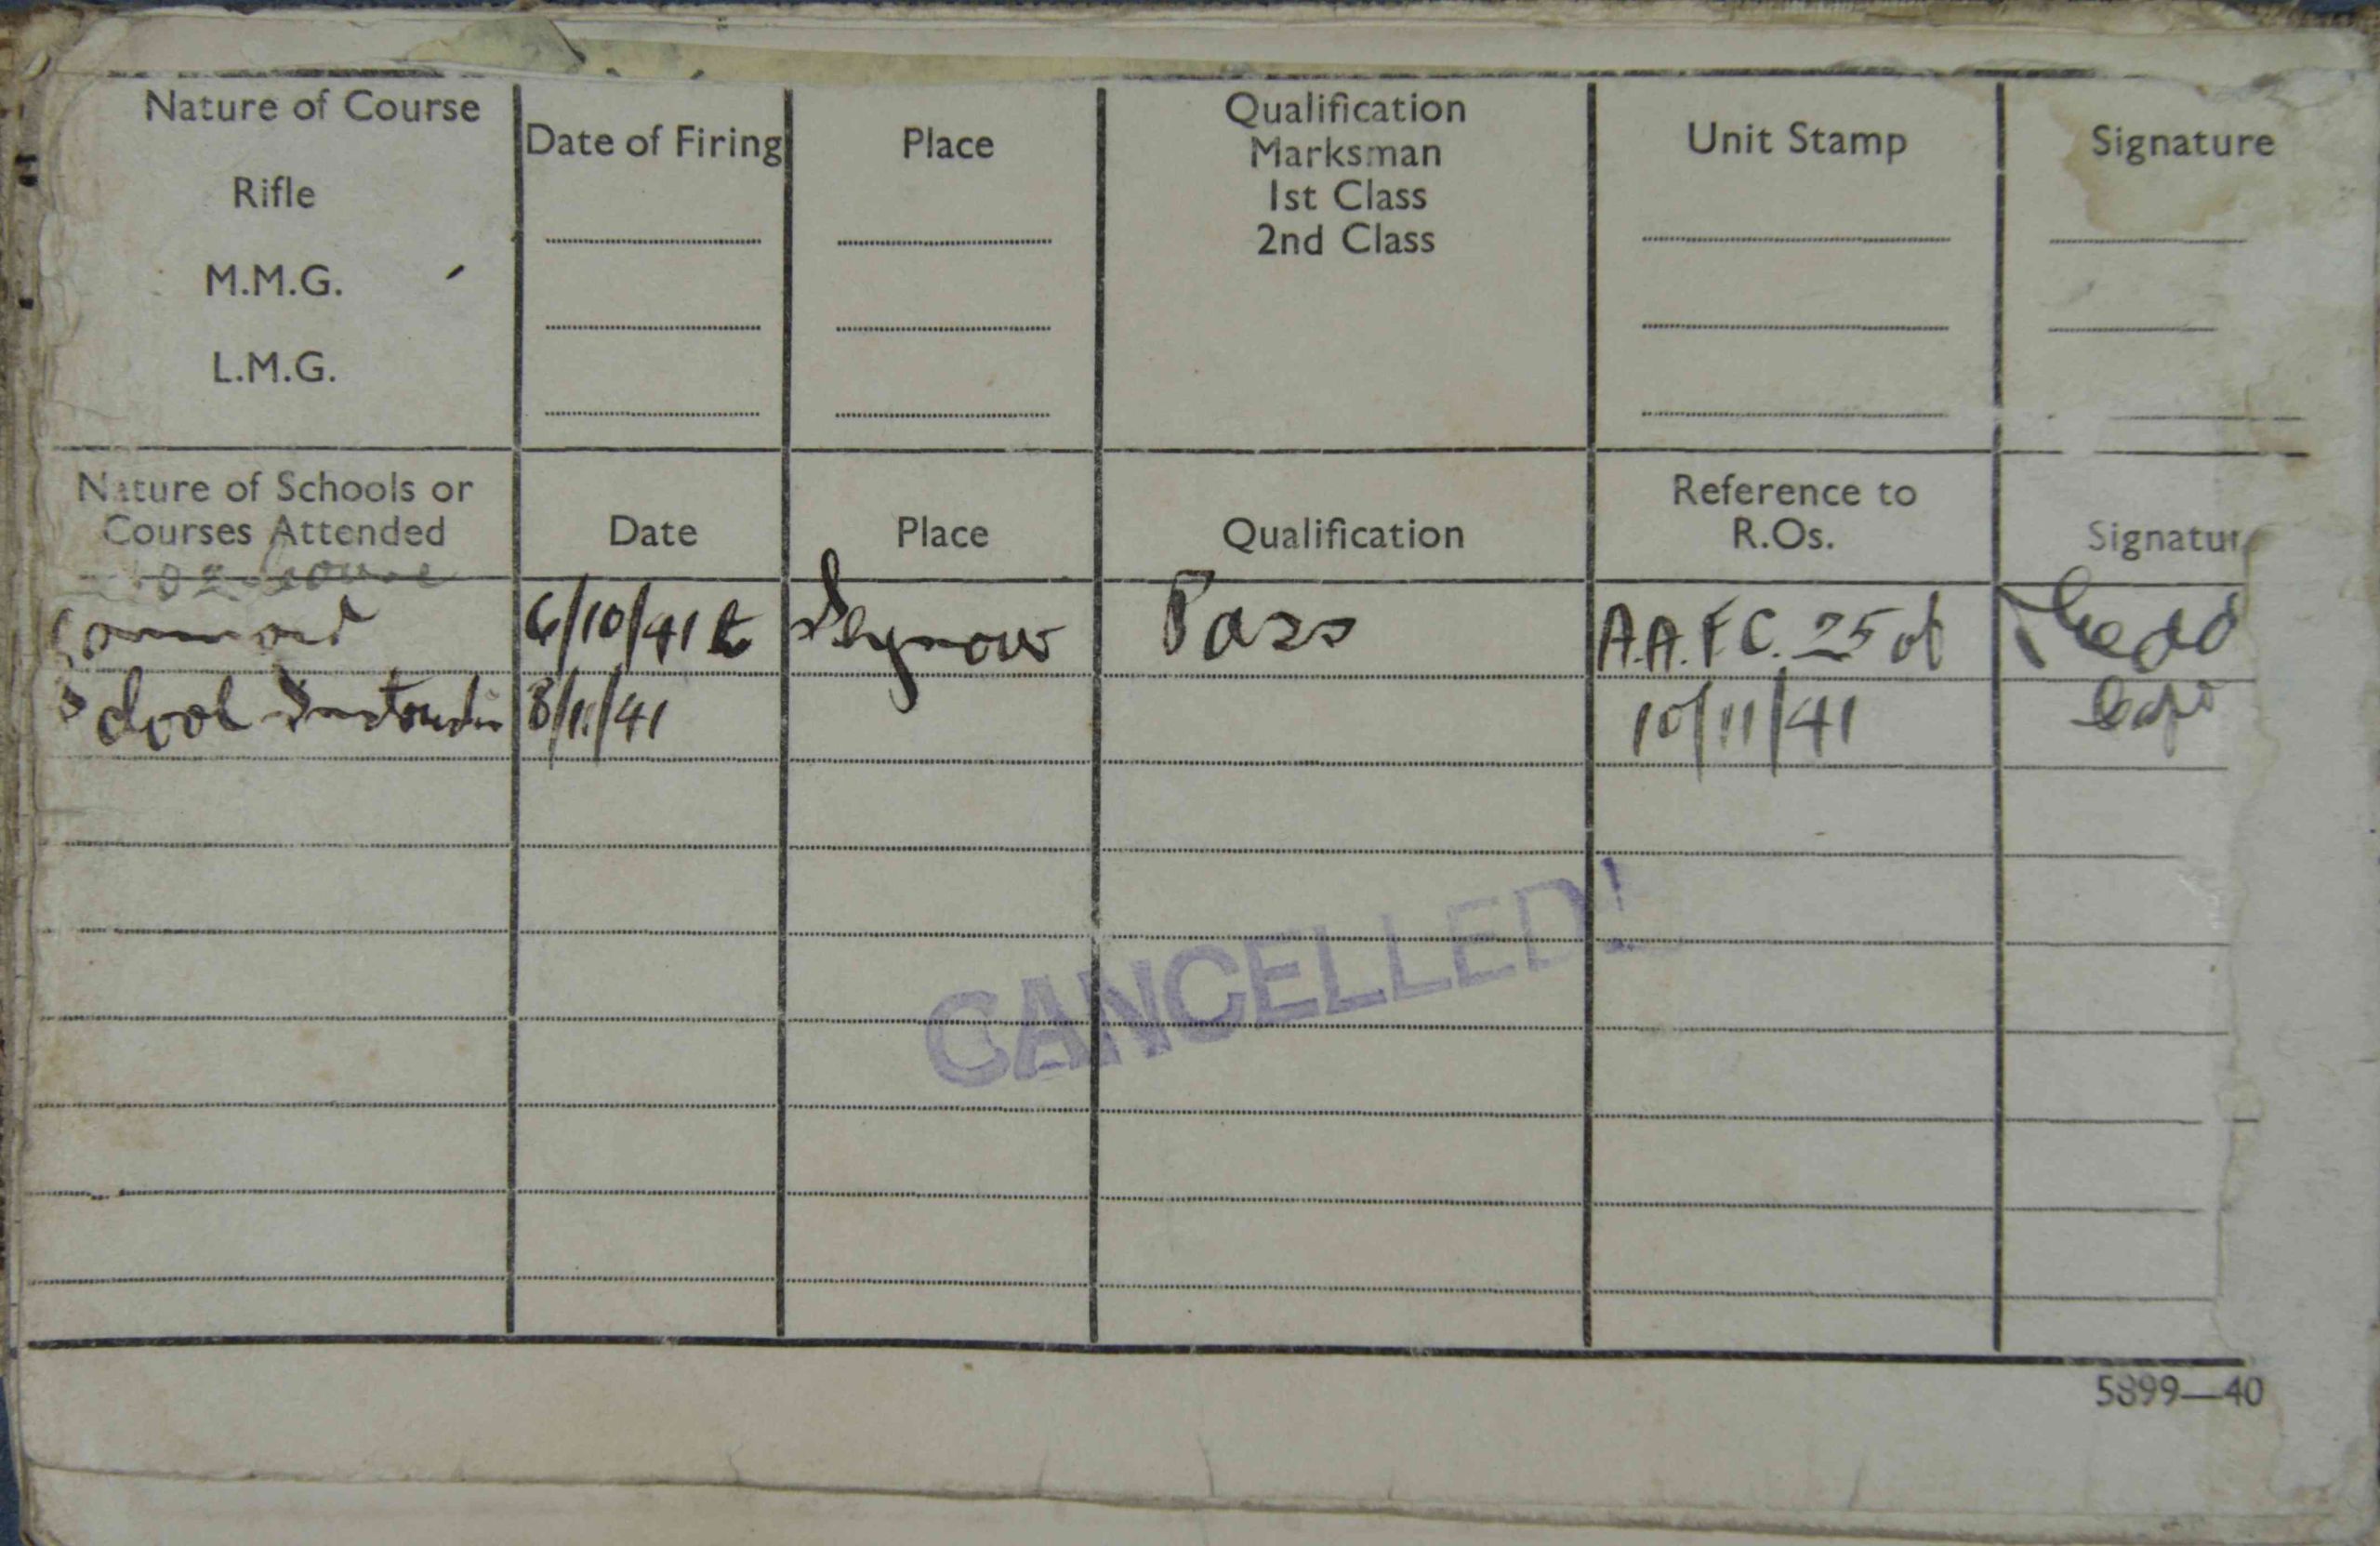 Nature of Course Date of Firing Place Qualification Unit Stamp Signature
Marksman
Rifle 1st Class
2nd Class
M.M.G.
L.M.G.
Nature of Schools or Reference to
Courses Attended Date Place Qualification R.Os. Signatur
Command 6/10/41 to Seymour Pass A.A.F.C. 25 of
School 8/11/41 10/11/41 Capt
CANCELLED!
5899—40